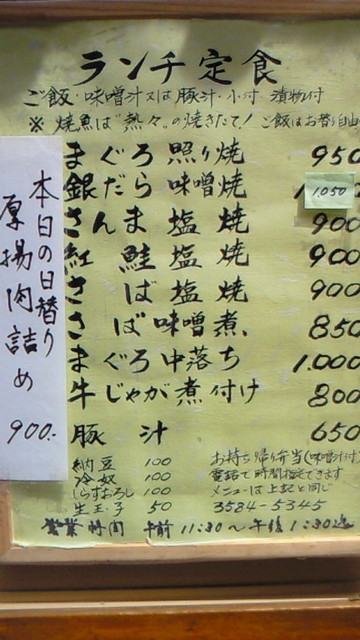 ランチ定食
ご飯・味噌汁又は豚汁・小付・漬物付
※ 焼魚は"熱々"の焼きたて！ ご飯はお替り自由
まぐろ照り焼 950
銀だら味噌焼 1,050
さんま塩焼 900
紅鮭塩焼 900
さば塩焼 900
さば味噌煮 850
まぐろ中落ち 1,000
牛じゃが煮付け 800
豚汁 650
納豆 100
冷奴 100
しらすおろし 100
生玉子 50
お持ち帰り弁当(味噌汁付)
電話で時間指定できます
メニューは上記と同じ
3584-5345
営業時間 午前11:30～午後1:30迄
本日の日替り
厚揚肉詰め
900.-